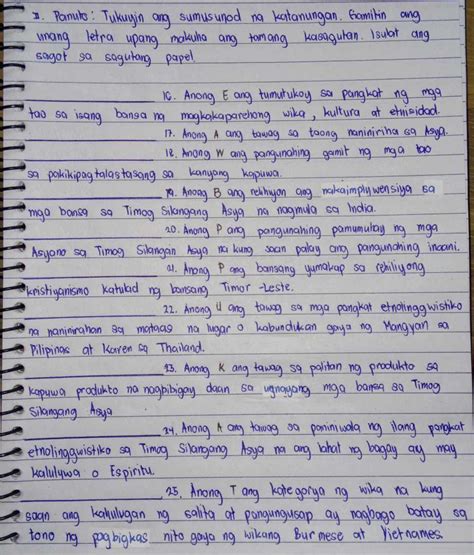 II. Panuto: Tukuyin ang sumusunod na katanungan. Gamitin ang
unang letra upang makuha ang tamang kasagutan. Isulat ang
sagot sa sagutang papel.
16. Anong E ang tumutukoy sa pangkat ng mga
tao sa isang bansa ng magkakaparehong wika, kultura at etnisidad.
17. Anong A ang tawag sa taong naninirira sa Asya.
18. Anong W ang pangunahing gamit ng mga tao
sa pakikipagtalastasang sa kanyang kapuwa.
19. Anong B ang relihiyon ang nakaimplywensiya sa
mga bansa sa Timog Silangang Asya na nagmula sa India.
20. Anong P ang pangunahing pamumuhay ng mga
Asyano sa Timog Silangan Asya na kung saan palay ang pangunahing inaani.
21. Anong P ang bansang yumakap sa rehiliyong
kristiyanismo katulad ng bansang Timor-Leste.
22. Anong U ang tawag sa mga pangkat etnolinggwistiko
na naninirahan sa mataas na lugar o kabundukan gaya ng Mangyan sa
Pilipinas at Karen sa Thailand.
23. Anong K ang tawag sa palitan ng produkto sa
kapuwa produkto na nagbibigay daan sa ugnayang mga bansa sa Timog
Silangang Asya
24. Anong A ang tawag sa paniniwala ng ilang pangkat
etnolinggwistiko sa Timog Silangang Asya na ang lahat ng bagay ay may
kaluluwa o Espiritu.
25. Anong T ang kategorya ng wika na kung
saan ang kahulugan ng salita at pangungusap ay nagbago batay sa
tono ng pagbigkas nito gaya ng wikang Burmese at Vietnames.